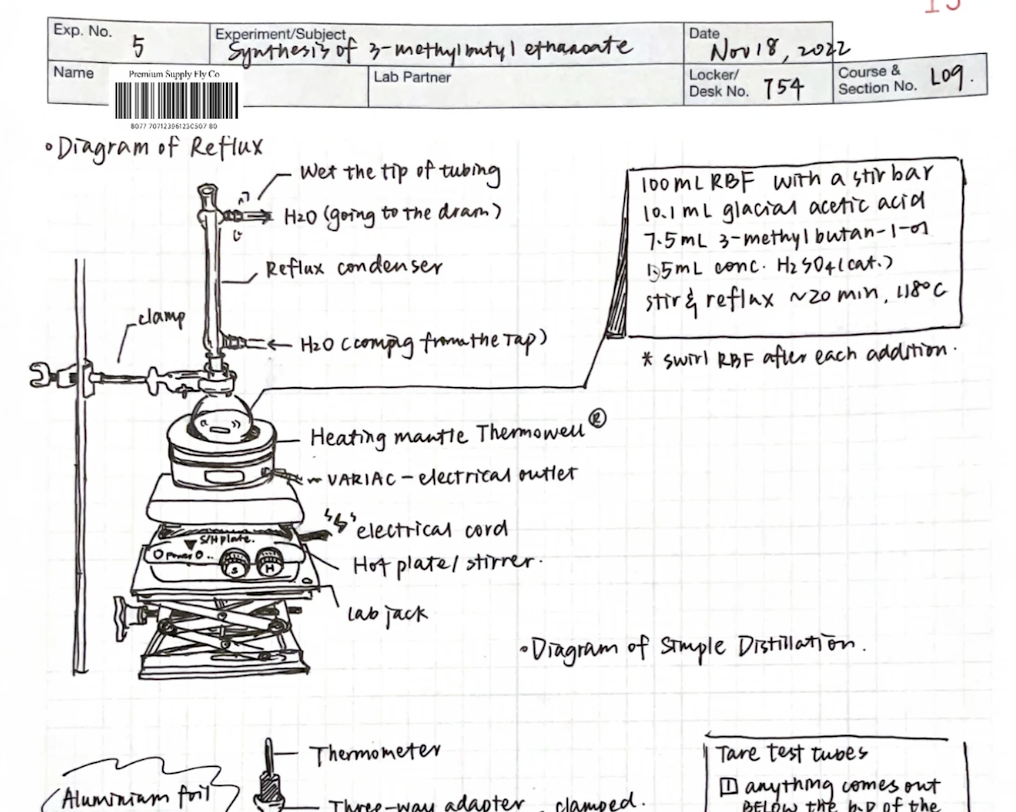 15
Exp. No. 5
Experiment/Subject Synthesis of 3-methylbutyl ethanoate
Date Nov 18, 2022
Name
Premium Supply Fly Co
Lab Partner
Locker/
Desk No. 754
Course &
Section No. L09.
•Diagram of Reflux
Wet the tip of tubing
H2O (going to the drain)
Reflux condenser
clamp
H2O (coming from the Tap)
100mL RBF with a stir bar
10.1 mL glacial acetic acid
7.5mL 3-methylbutan-1-ol
1.5mL conc. H2SO4 (cat.)
stir & reflux ~20 min, 118°C
* swirl RBF after each addition.
Heating mantle Thermowell®
VARIAC - electrical outlet
electrical cord
S/H plate.
Power
S H
Hot plate/ stirrer.
Lab jack
•Diagram of Simple Distillation.
Thermometer
Aluminium foil
Three-way adapter, clamped.
Tare test tubes
1 anything comes out
BELOW the b.p of the